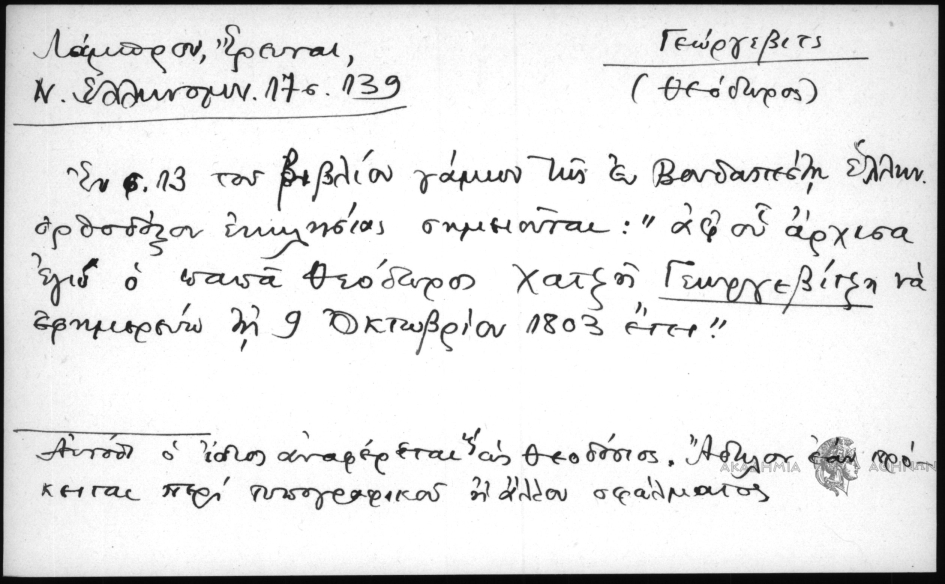 Λάμπρου, Ἔρευναι,
Ν. Ἑλληνομν. 17 σ. 139
Γεώργεβιτς
(Θεόδωρος)
Ἐν σ. 13 τοῦ βιβλίου γάμων τῆς ἐν Βουδαπέστῃ ἑλλην.
ὀρθοδόξου ἐκκλησίας σημειοῦται: "ἀφ' οὗ ἄρχισα
ἐγὼ ὁ παπᾶ Θεόδωρος Χατζῆ Γεωργεβίτζη νὰ
ἐφημερεύω τῇ 9 Ὀκτωβρίου 1803 ἔτει".
Αὐτόθι ὁ ἴδιος ἀναφέρεται καὶ ὡς Θεοδόσιος. Ἄδηλον ἐὰν πρό
κειται περὶ τυπογραφικοῦ ἢ ἄλλου σφάλματος
ΑΚΑΔΗΜΙΑ ΑΘΗΝΩΝ